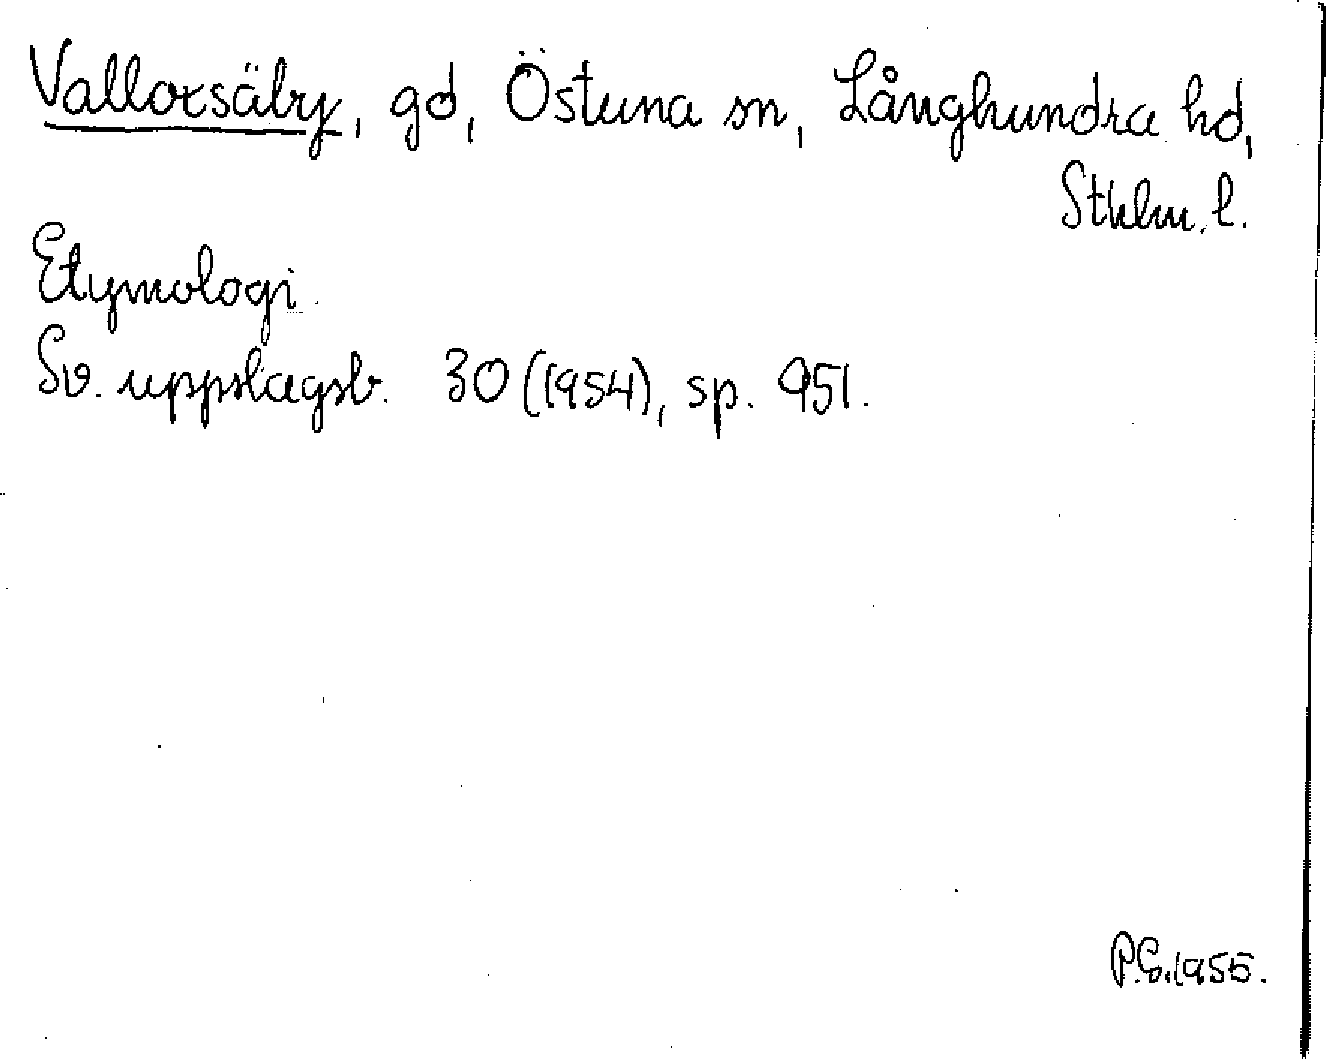 Vallorsäby, gd, Östuna sn, Långhundra hd,
Sthlm. l.
Etymologi.
Sv. uppslagsb. 30 (1954), sp. 951.
P.G. 1955.